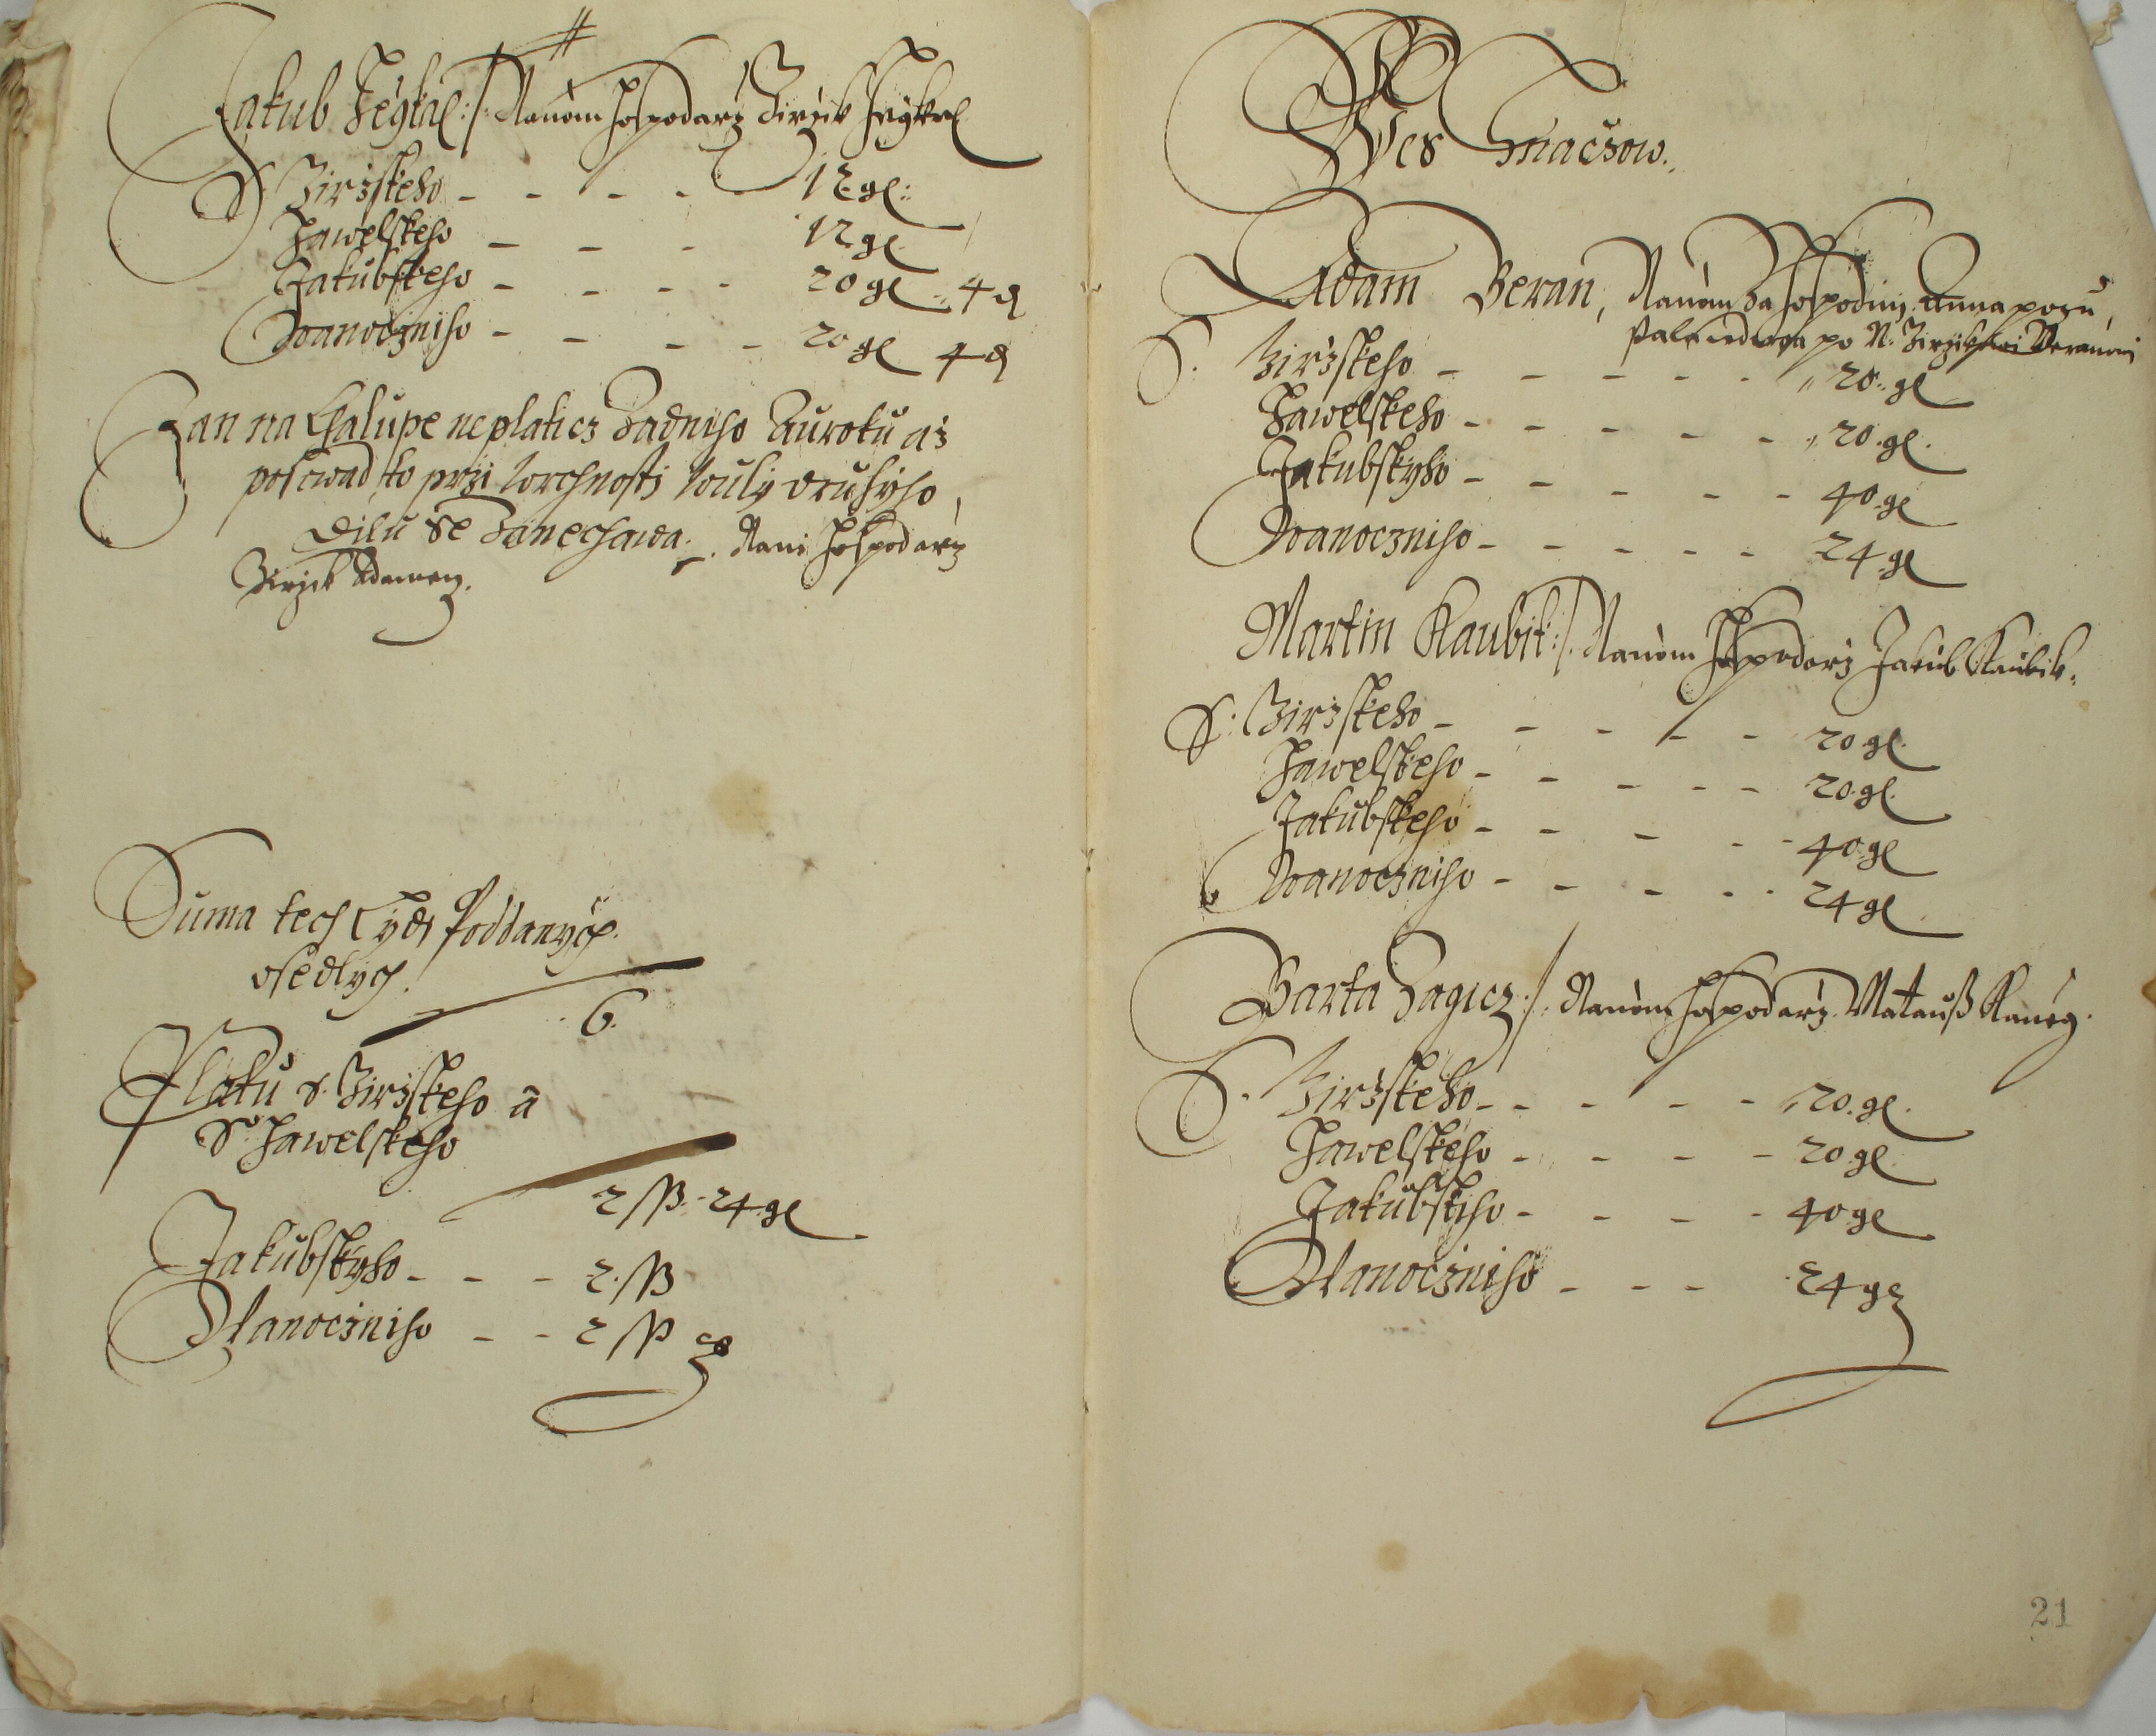 Jakub Jegkal:/: Nanom hospodarz Jirzik Jeykal
S: Jirzskeho 12 gl:
Hawelskeho 12 gl
Jakubskeho 20 gl 4 d
Wanoczniho 20 gl 4 d
Jan na Chalupe neplaticz Zadniho Auroku az
posawad to przi worchnosti wuly druhyho
dilu se Zanechawa. Nani hospodarz
Jirzik Adamez.
Suma tech Lydi Poddanych
osedlych
6.
Platu S. Jirzskeho a
S: Hawelskeho
2 ss. 24 gl
Jakubskyho 2 ss
Wanoczniho 2 ss
Wes
Adam Beran, Nanom za hospodini Anna pozu
stala wdowa po N: Jirzikowi Beranowi
S. Jirzskeho 20 gl
Hawelskeho 20 gl.
Jakubskyho 40 gl
Wanoczniho 24 gl
Martin Kaubik:/: Nanom hospodarz Jakub Kaubik.
S: Jirzskeho 20 gl.
Hawelskeho 20 gl.
Jakubskeho 40 gl
Wanoczniho 24 gl
Barta Zagicz:/: Nanom hospodarz Matauß
S. Jirzskeho 20. gl.
Hawelskeho 20 gl
Jakubskiho 40 gl
Wanoczniho 24 gl
21